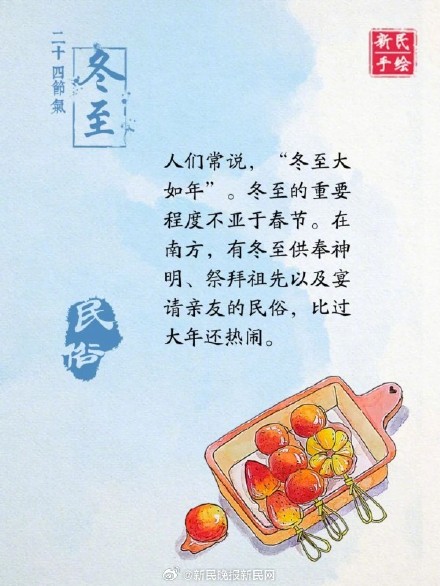 二十四節氣
冬至
新民
手绘
人们常说，“冬至大
如年”。冬至的重要
程度不亚于春节。在
南方，有冬至供奉神
明、祭拜祖先以及宴
请亲友的民俗，比过
大年还热闹。
民俗
@新民晚报新民网